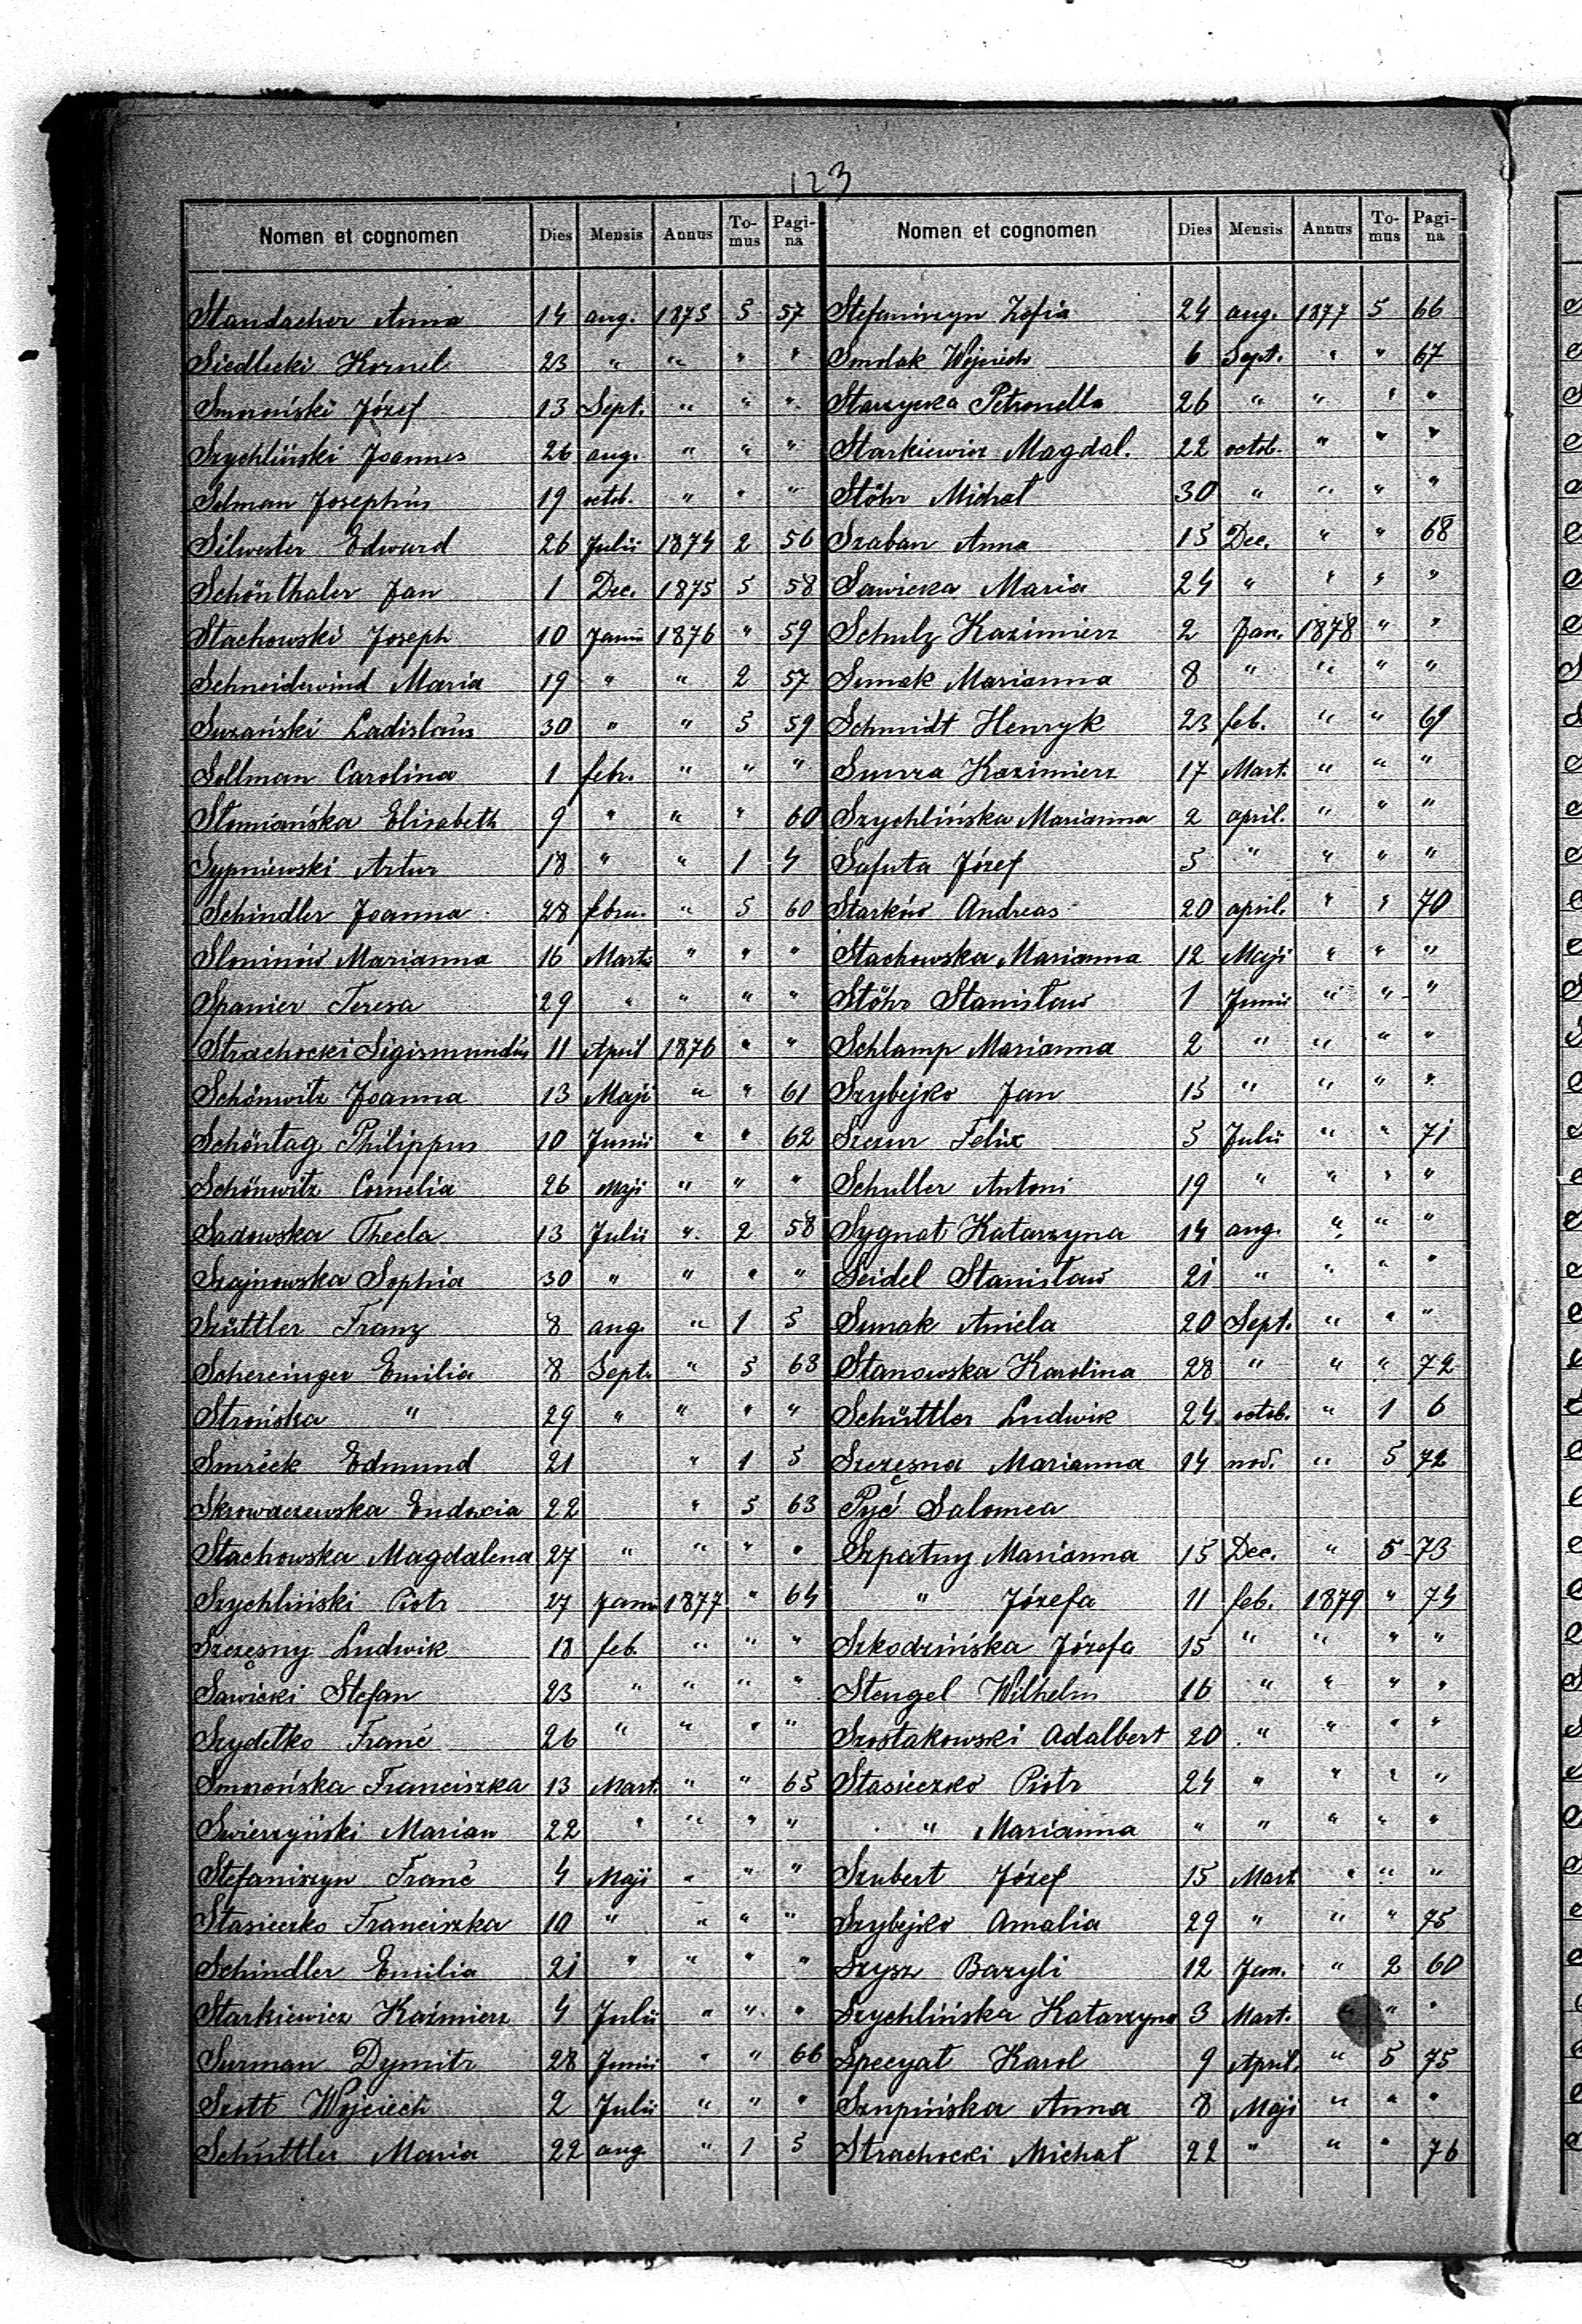 123
Nomen et cognomen Dies Mensis Annus To-mus Pagi-na
Standacher Anna 14 aug. 1875 5 57
Siedlecki Kornel 23 " " " "
Smoroński Józef 13 Sept. " " "
Szychliński Joannes 26 aug. " " "
Selman Josephus 19 octob. " " "
Silwester Edward 26 Julii 1874 2 56
Schönthaler Jan 1 Dec. 1875 5 58
Stachowski Joseph 10 Januii 1876 " 59
Schneiderwind Maria 19 " " 2 57
Suzański Ladislaus 30 " " 5 59
Sollman Carolina 1 febr. " " "
Słomiańska Elisabeth 9 " " " 60
Sypniewski Artur 18 " " 1 4
Schindler Joanna 28 febru. " 5 60
Sloninów Marianna 16 Martii " " "
Spanier Teresa 29 " " " "
Strachocki Sigismundus 11 April 1876 " "
Schönwitz Joanna 13 Maji " " 61
Schöntag Philippus 10 Junii " " 62
Schönwitz Cornelia 26 Maji " " "
Sadowska Thecla 13 Julii " 2 58
Szajnowska Sophia 30 " " " "
Szüttler Franz 8 aug. " 1 5
Schereinger Emilia 8 Sept. " 5 63
Strońska " 29 " " " "
Smrěck Edmund 21 " 1 5
Skrowaczewska Eudoxia 22 " 5 63
Stachowska Magdalena 27 " " " "
Szychliński Piotr 27 Janu 1877 " 64
Szczęsny Ludwik 18 feb. " " "
Sawicki Stefan 23 " " " "
Szydełko Franc 26 " " " "
Smorońska Franciszka 13 Mart. " " 65
Swierzyński Marian 22 " " " "
Stefaniszyn Franc 4 Maji " " "
Stasieczko Franciszka 10 " " " "
Schindler Emilia 21 " " " "
Starkiewicz Kaźmierz 4 Julii " " "
Surman Dymitr 28 Junii " " 66
Szott Wojciech 2 Julii " " "
Schüttler Maria 22 aug. " 1 5
Nomen et cognomen Dies Mensis Annus To-mus Pagi-na
Stefaniszyn Zofia 24 aug. 1877 5 66
Smolak Wojciech 6 Sept. " " 67
Starzycka Petronella 26 " " " "
Starkiewicz Magdal. 22 octob. " " "
Stöhr Michał 30 " " " "
Szaban Anna 15 Dec. " " 68
Sawicka Maria 24 " " " "
Schulz Kazimierz 2 Jan. 1878 " "
Sumak Marianna 8 " " " "
Schmidt Henryk 23 feb. " " 69
Kazimierz 17 Mart. " " "
Szychlińska Marianna 2 april. " " "
Safuta Józef 5 " " " "
Starków Andreas 20 april. " " 70
Stachowska Marianna 12 Maji " " "
Stöhr Stanisław 1 Junii " " "
Schlamp Marianna 2 " " " "
Szybejko Jan 15 " " " "
Szczur Felix 5 Julii " " 71
Schuller Antoni 19 " " " "
Sygnat Katarzyna 14 aug. " " "
Seidel Stanisław 21 " " " "
Sumak Aniela 20 Sept. " " "
Stanowska Karolina 28 " " " 72
Schüttler Ludwik 24 octob. " 1 6
Szczęsna Marianna 14 nov. " 5 72
Pyć Salomea
Szpatny Marianna 15 Dec. " 5 73
" Józefa 11 feb. 1879 " 74
Szkodzińska Józefa 15 " " " "
Stengel Wilhelm 16 " " " "
Szostakowski Adalbert 20 " " " "
Stasieczko Piotr 24 " " " "
" Marianna " " " " "
Szubert Józef 15 Mart. " " "
Szybejko Amalia 29 " " " 75
Szysz Bazyli 12 Jan. " 2 60
Szychlińska Katarzyna 3 Mart. " " "
Specyat Karol 9 April. " 5 75
Szupińska Anna 8 Maji " " "
Strachocki Michał 22 " " " 76